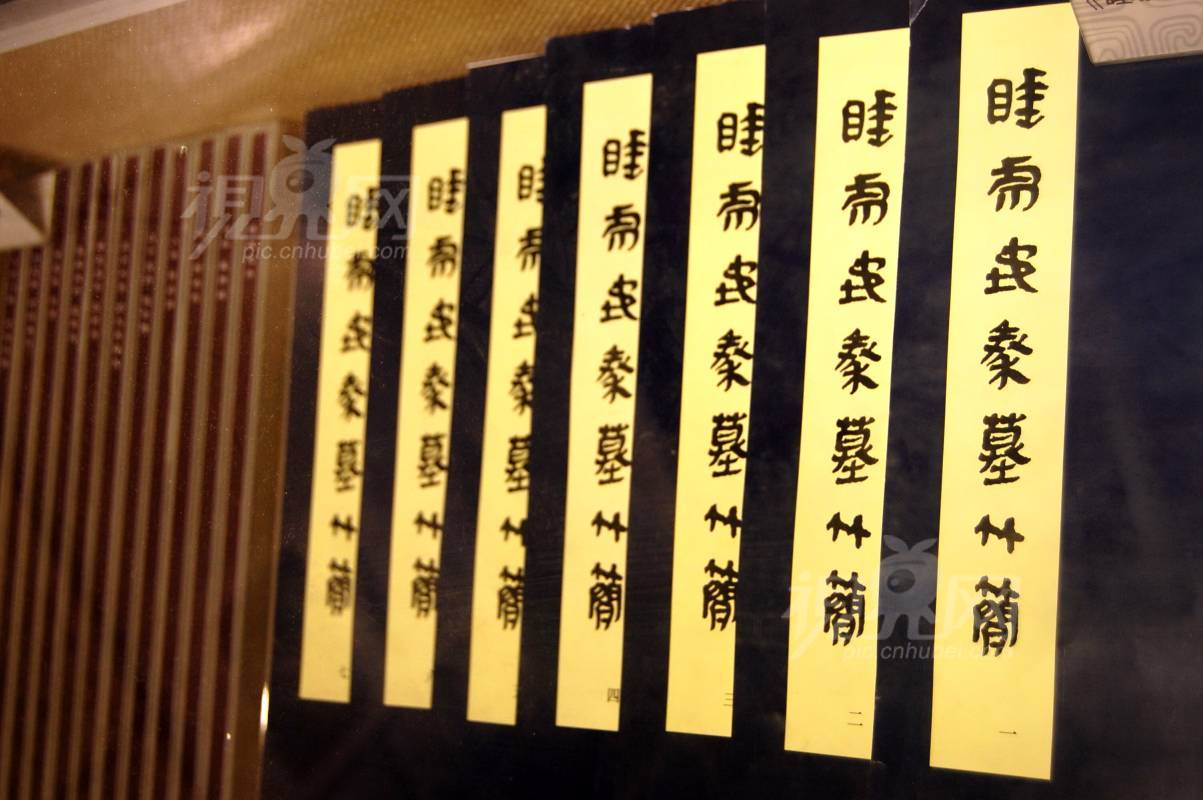 睡虎地秦墓竹简
一
睡虎地秦墓竹简
二
睡虎地秦墓竹简
三
睡虎地秦墓竹简
四
睡虎地秦墓竹简
睡虎地秦墓竹简
睡虎地秦墓竹简
七
視界网
pic.cnhubei.com
視界网
pic.cnhubei.com